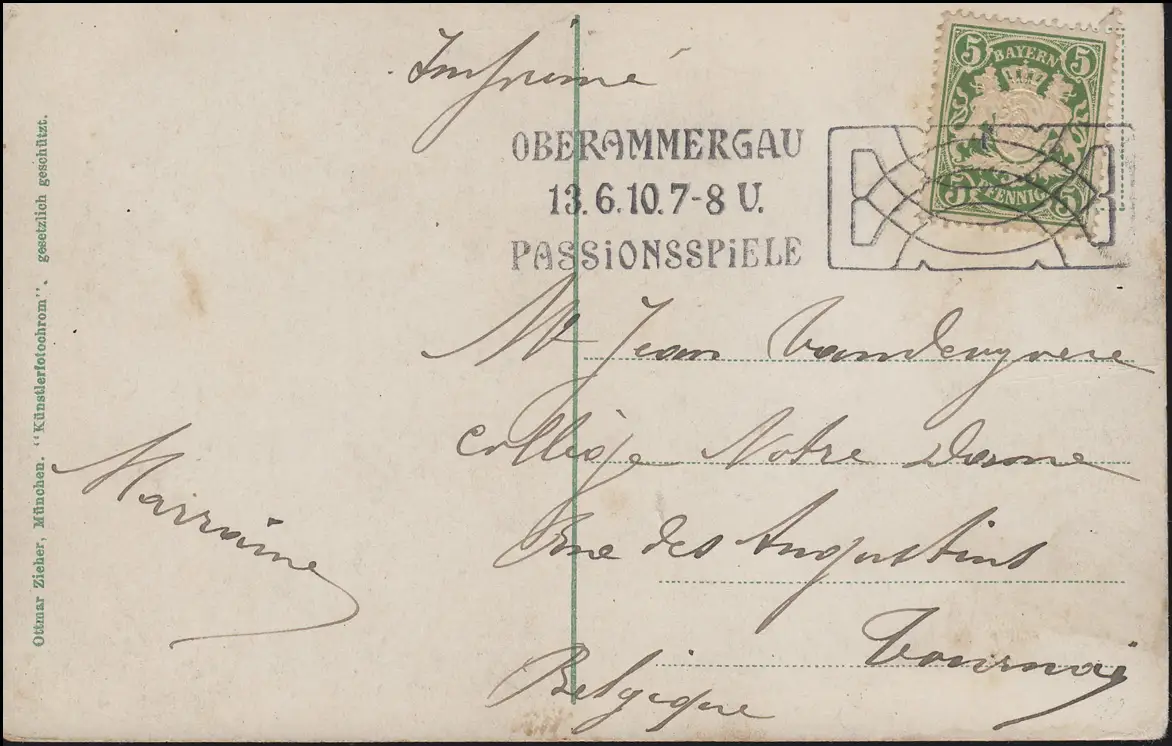 Imprimé
5 BAYERN 5
5 PFENNIG 5
OBERAMMERGAU
13.6.10.7-8 U.
PASSiONSSPiELE
Mr Jean Vandengvere
collège Notre Dame
Rue des Augustins
Tournai
Belgique
Marraine
Ottmar Zieher, München. "Künstlerfotochrom". gesetzlich geschützt.